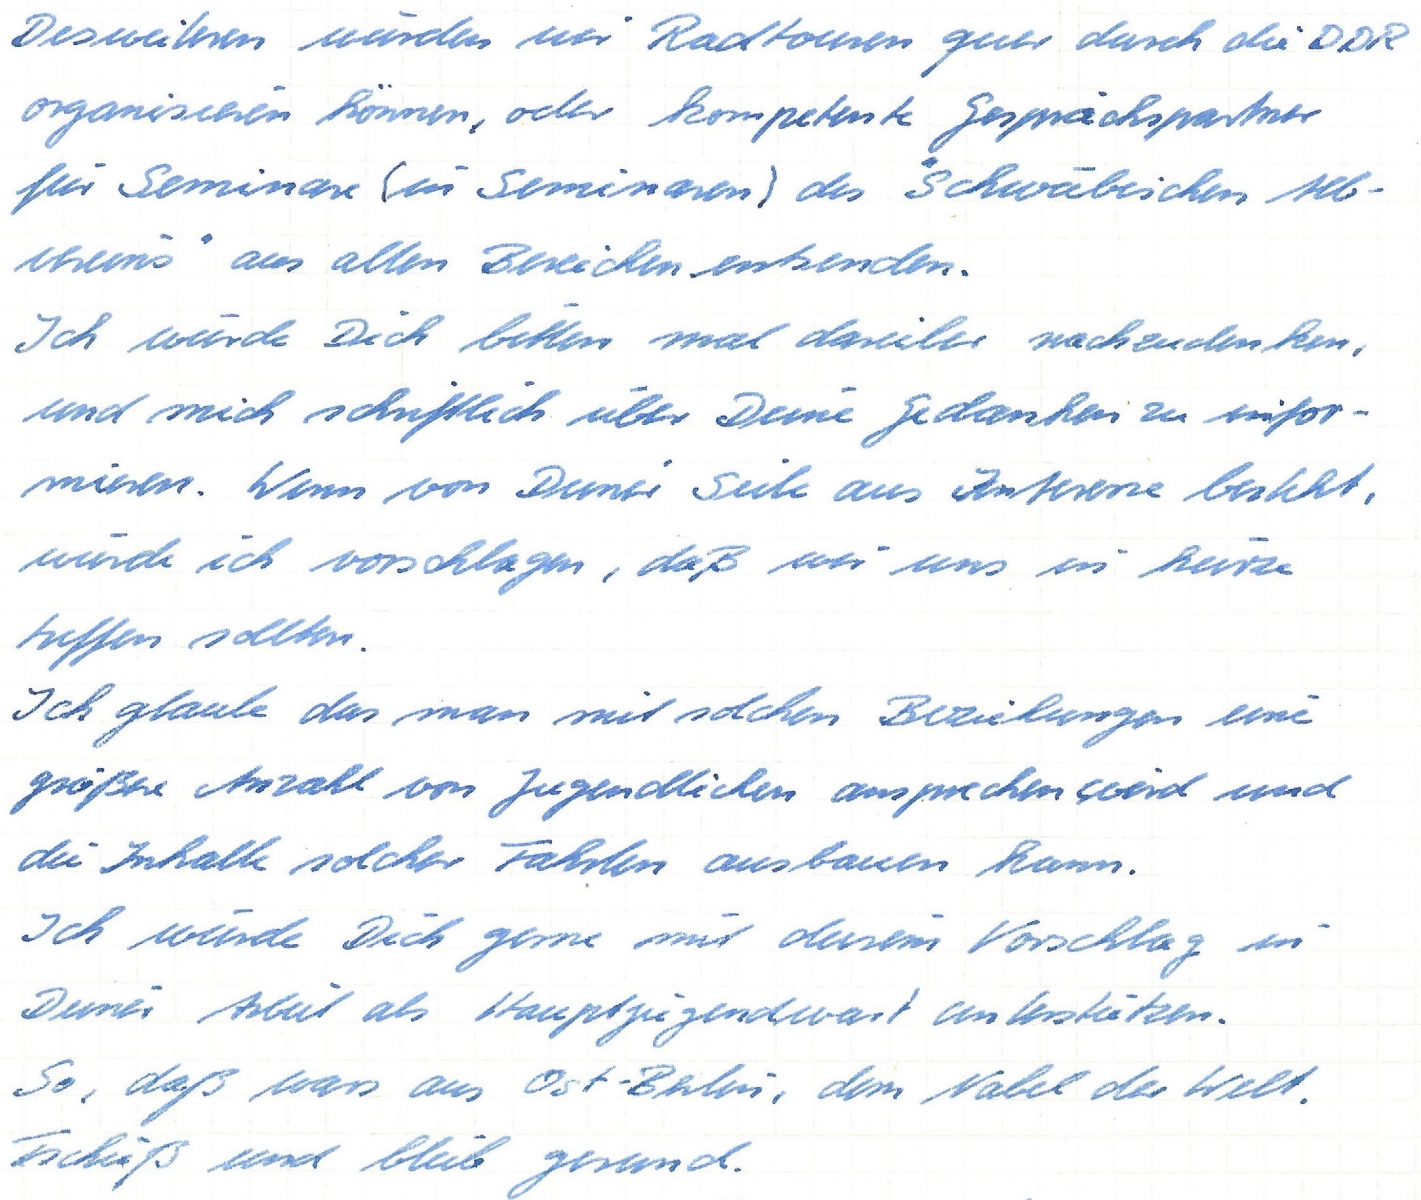 Desweiteren würden wir Radtouren quer durch die DDR
organisieren können, oder kompetente Gesprächspartner
für Seminare (in Seminaren) des "Schwäbischen Alb-
vereins" aus allen Bereichen entsenden.
Ich würde Dich bitten mal darüber nachzudenken,
und mich schriftlich über Deine Gedanken zu infor-
mieren. Wenn von Deiner Seite aus Interesse besteht,
würde ich vorschlagen, daß wir uns in kürze
treffen sollten.
Ich glaube das man mit solchen Beziehungen eine
größere Anzahl von Jugendlichen ansprechen wird und
die Inhalte solcher Fahrten ausbauen kann.
Ich würde Dich gerne mit diesem Vorschlag in
Deiner Arbeit als Hauptjugendwart unterstützen.
So, daß wars aus Ost-Berlin, dem Nabel der Welt.
Tschüß und bleib gesund.